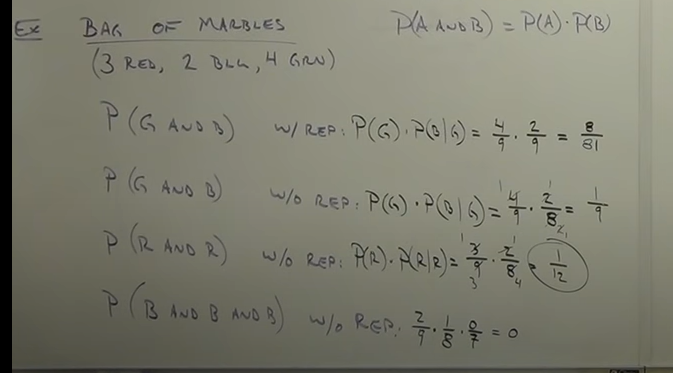 Ex BAG OF MARBLES P(A AND B) = P(A) · P(B)
(3 RED, 2 BLU, 4 GRN)
P(G AND B) W/ REP: P(G) · P(B|G) = 4/9 · 2/9 = 8/81
P(G AND B) W/O REP: P(G) · P(B|G) = 4/9 · 2/8 = 1/9
P(R AND R) W/O REP: P(R) · P(R|R) = 3/9 · 2/8 = 1/12
P(B AND B AND B) W/O REP: 2/9 · 1/8 · 0/7 = 0